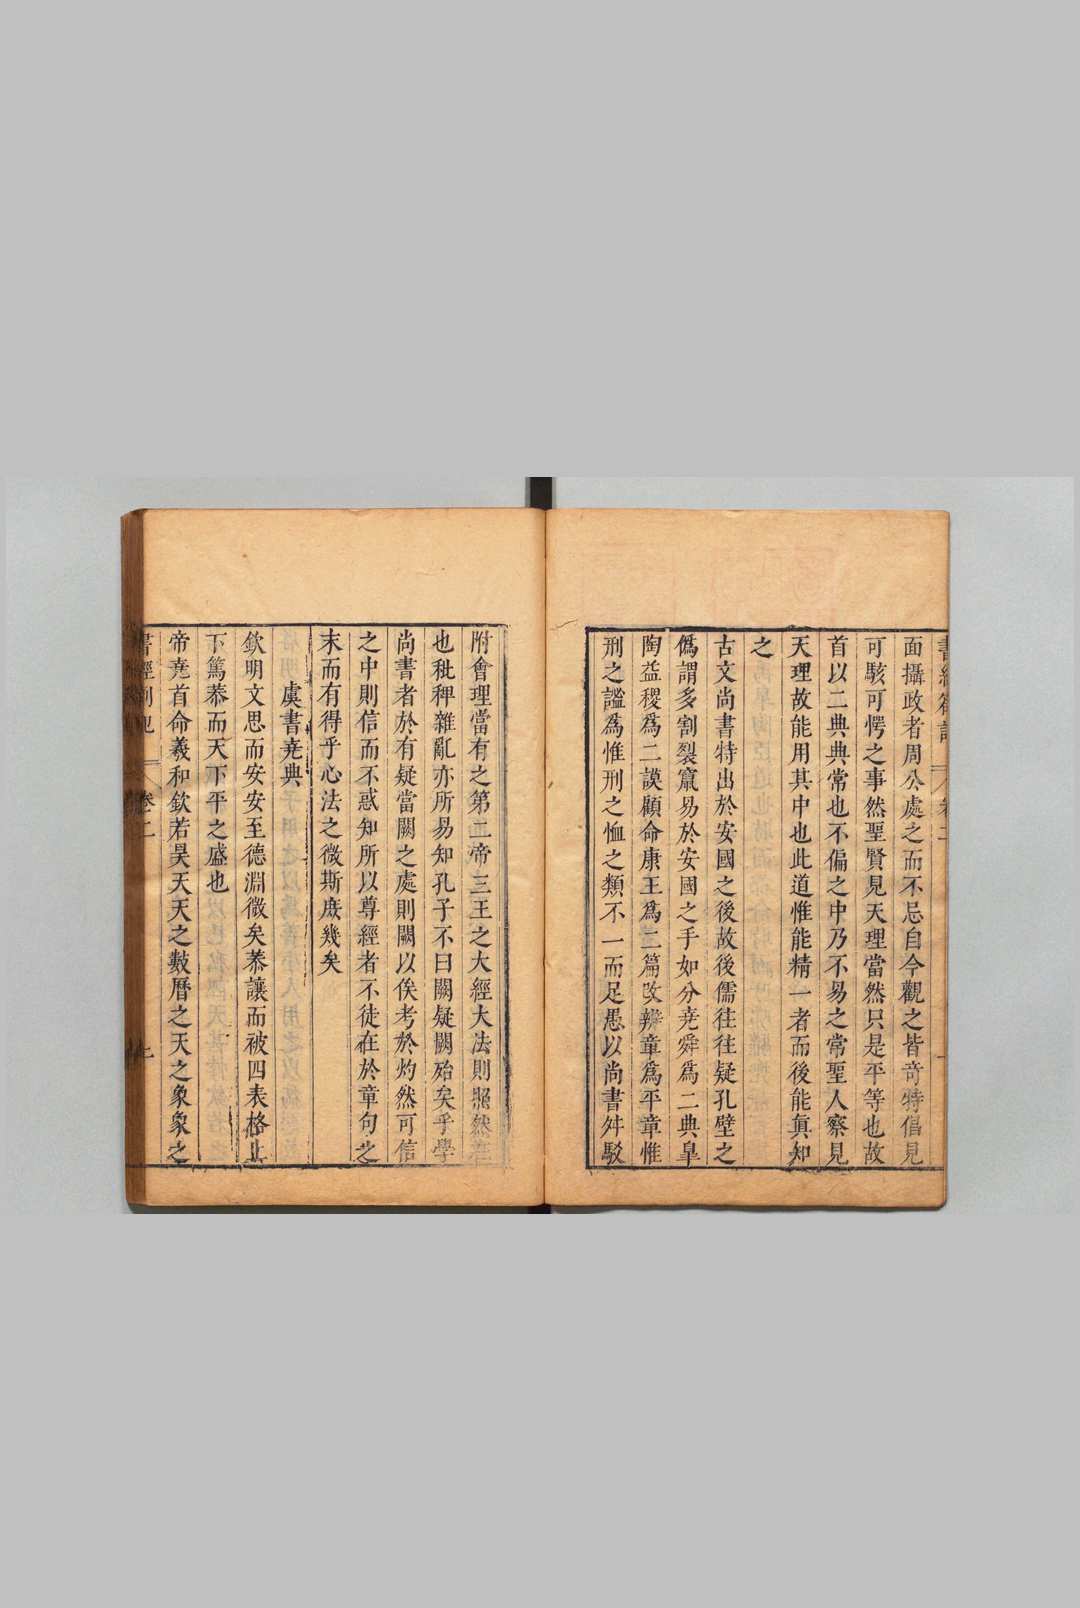 面攝政者周公處之而不忌自今觀之皆竒特倡見
可駭可愕之事然聖賢見天理當然只是平等也故
首以二典典常也不偏之中乃不易之常聖人察見
天理故能用其中也此道惟能精一者而後能眞知
之
古文尚書特出於安國之後故後儒徃徃疑孔壁之
僞謂多割裂竄易於安國之手如分堯舜爲二典皐
陶益稷爲二謨顧命康王爲二篇改辨章爲平章惟
刑之謐爲惟刑之恤之類不一而足愚以尚書舛駁
附會理當有之第二帝三王之大經大法則照然
也秕稗雜亂亦所易知孔子不曰闕疑闕殆矣乎學
尚書者於有疑當闕之處則闕以俟考於灼然可信
之中則信而不惑知所以尊經者不徒在於章句之
末而有得乎心法之微斯庶幾矣
虞書堯典
欽明文思而安安至德淵微矣恭讓而被四表格上
下篤恭而天下平之盛也
帝堯首命羲和欽若昊天天之數曆之天之象象之
卷二